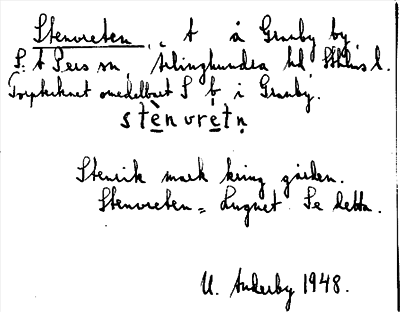 Stenvreten, t å Granby by,
S:t Pers sn, Ärlinghundra hd Sthlms l.
Torpbebyggt omedelbart S b i Granby.
stènvrétṇ
Stenrik mark kring gården.
Stenvreten = Lugnet. Se detta.
U. Anderby 1948.